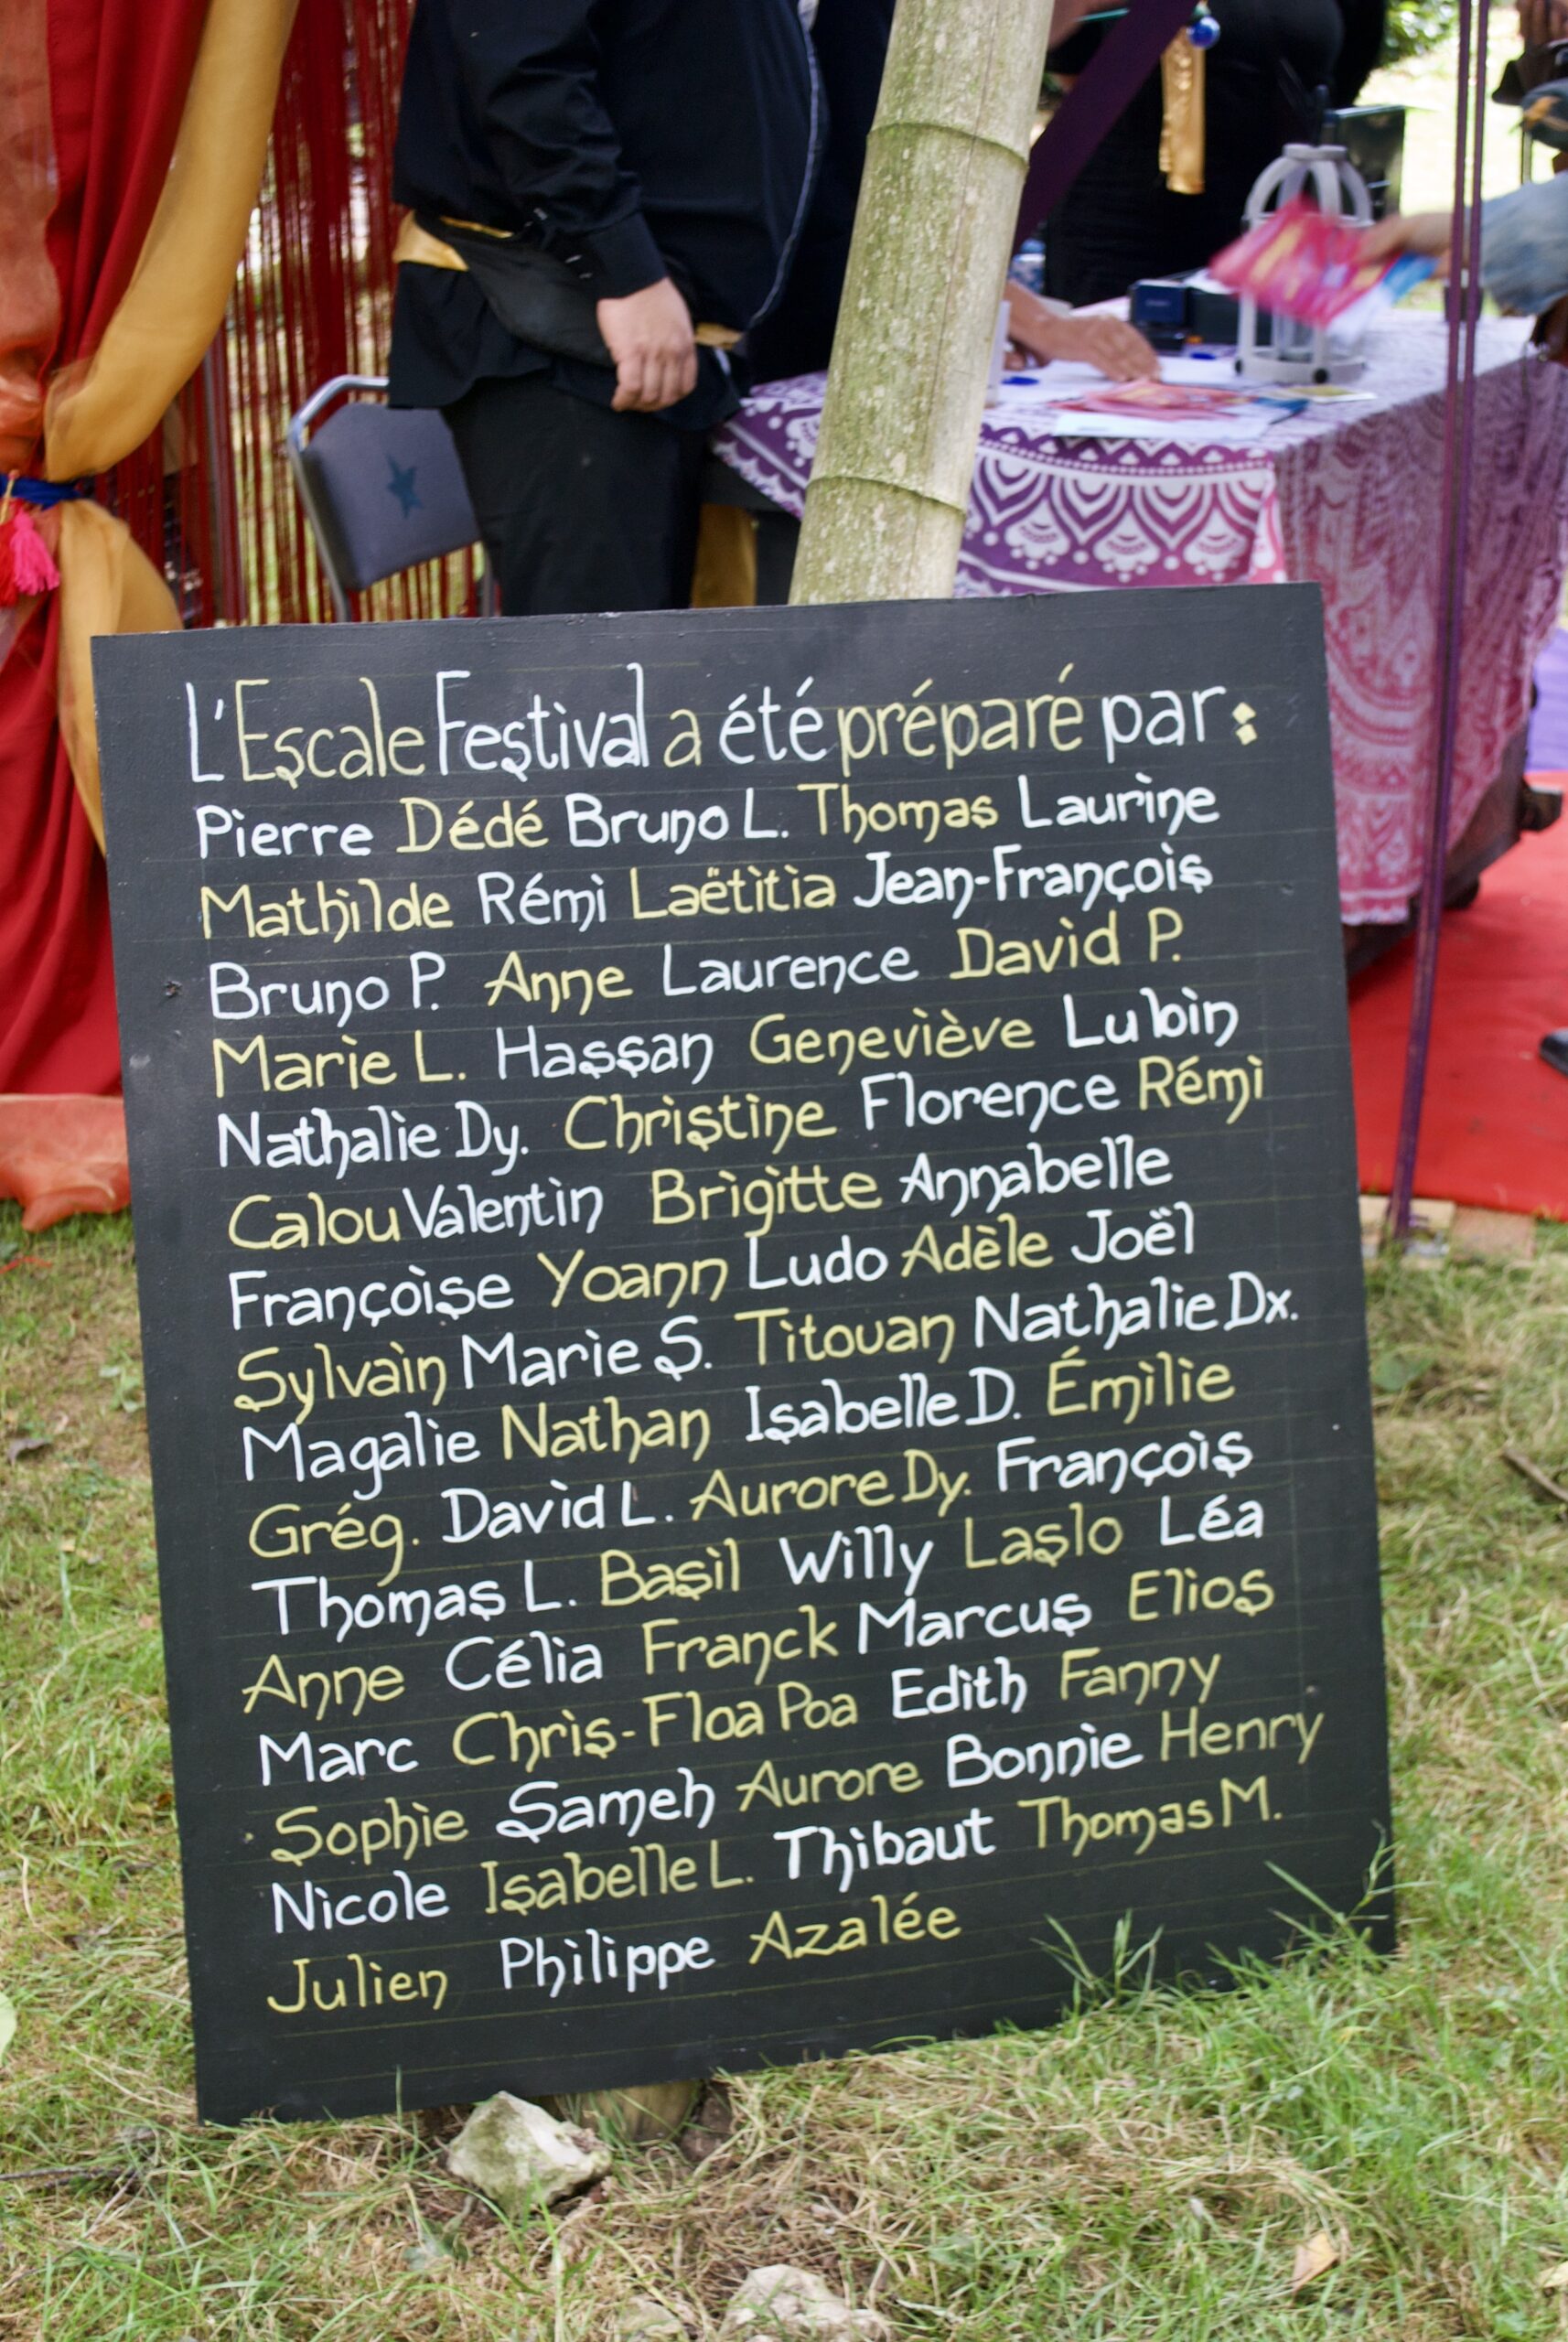 L'Escale Festival a été préparé par :
Pierre Dédé Bruno L. Thomas Laurine
Mathilde Rémi Laëtitia Jean-François
Bruno P. Anne Laurence David P.
Marie L. Hassan Geneviève Lubin
Nathalie Dy. Christine Florence Rémi
Calou Valentin Brigitte Annabelle
Françoise Yoann Ludo Adèle Joël
Sylvain Marie S. Titouan Nathalie Dx.
Magalie Nathan Isabelle D. Émilie
Grég. David L. Aurore Dy. François
Thomas L. Basil Willy Laslo Léa
Anne Célia Franck Marcus Elios
Marc Chris-Floa Poa Edith Fanny
Sophie Sameh Aurore Bonnie Henry
Nicole Isabelle L. Thibaut Thomas M.
Julien Philippe Azalée